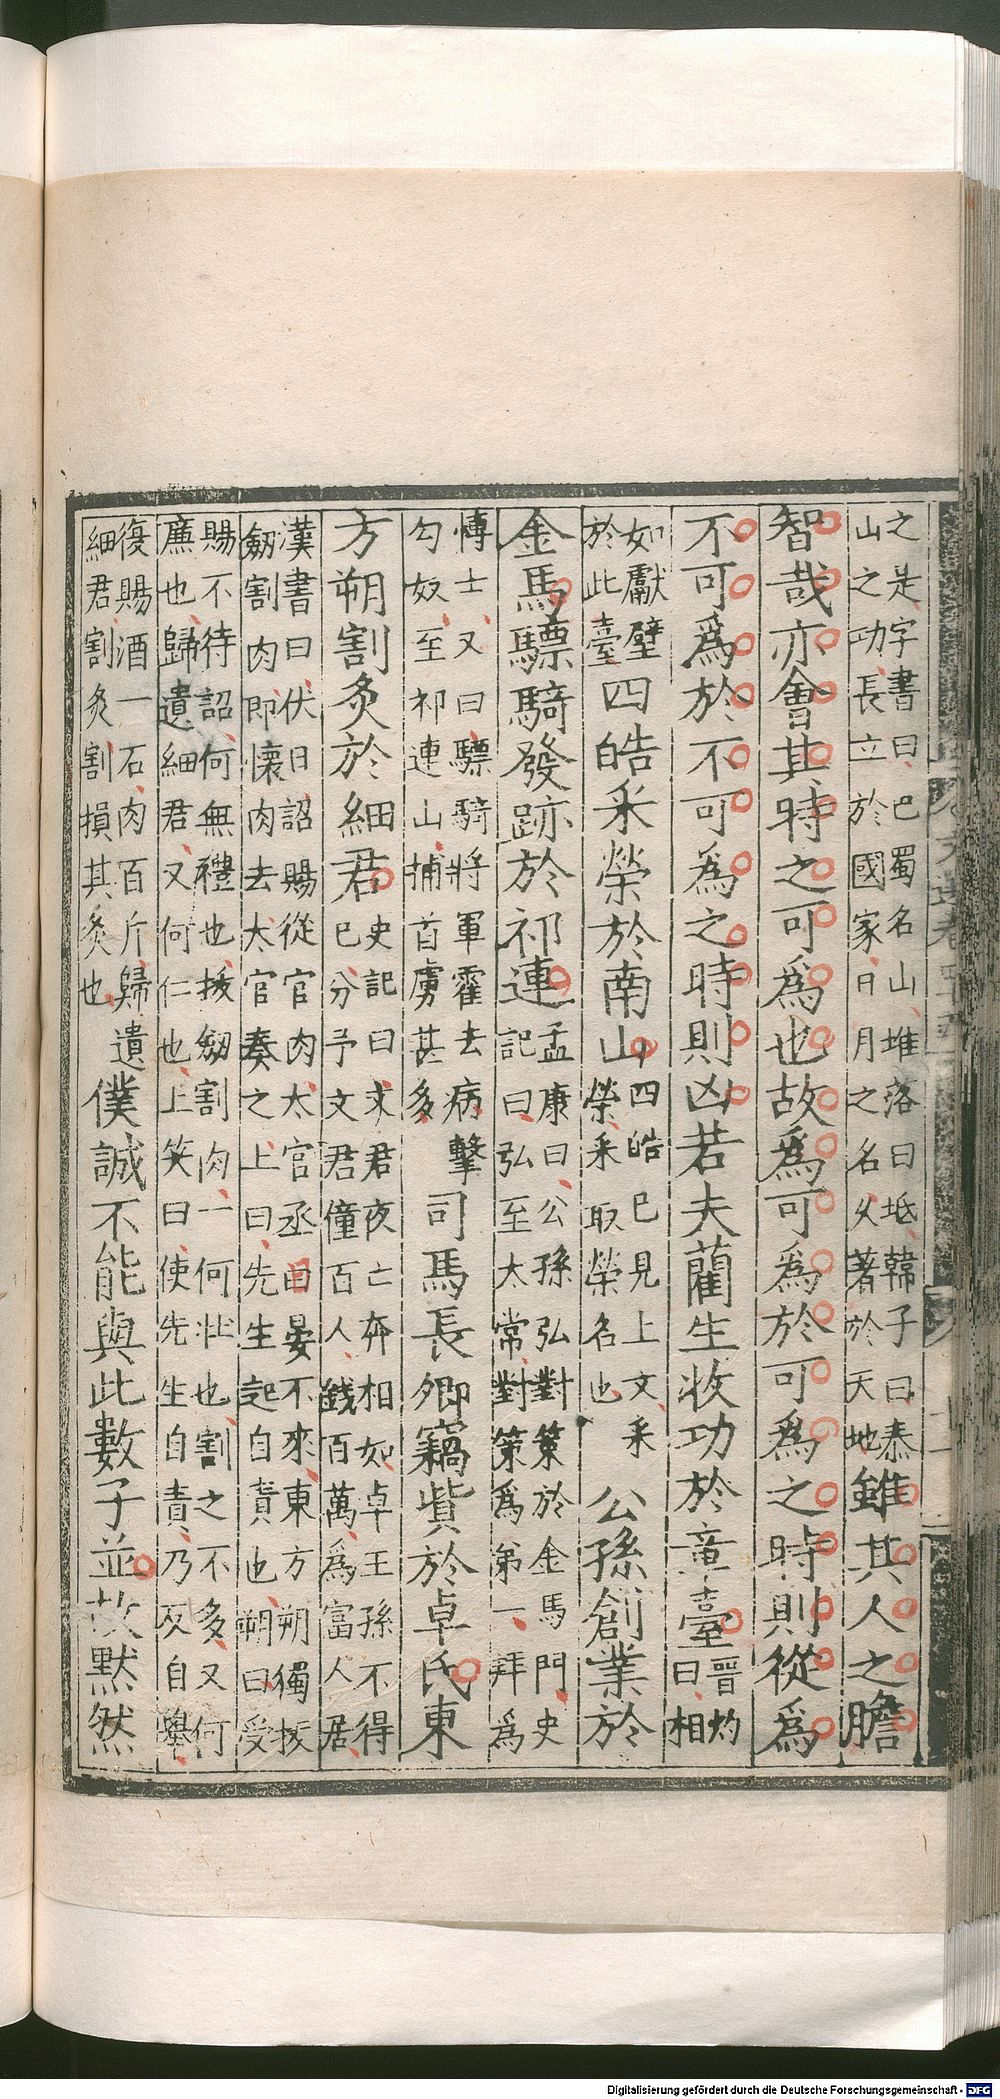 之是字書曰巴蜀名山堆落曰坻韓子曰泰
山之功長立於國家日月之名乆著於天地雖其人之膽
智哉亦會其時之可爲也故爲可爲於可爲之時則從爲
不可爲於不可為之時則凶若夫藺生收功於章臺晉灼曰相
如獻璧於此臺四皓采榮於南山四皓已見上文采榮采取榮名也公孫創業於
金馬驃騎發跡於祁連孟康曰公孫弘對策於金馬門史記曰弘至太常對策爲第一拜爲
博士又曰驃騎將軍霍去病擊匈奴至祁連山捕首虜甚多司馬長卿竊貲於卓氏東
方朔割炙於細君史記曰文君夜亡奔相如卓王孫不得已分予文君僮百人錢百萬爲富人居
漢書曰伏日詔賜從官肉太官丞日晏不來東方朔獨拔
劒割肉即懷肉去太官奏之上曰先生起自責也朔曰受
賜不待詔何無禮也拔劒割肉一何壯也割之不多又何
廉也歸遺細君又何仁也上笑曰使先生自責乃反自舉
復賜酒一石肉百斤歸遺細君割炙割損其炙也僕誠不能與此數子並故默然
Digitalisierung gefördert durch die Deutsche Forschungsgemeinschaft - DFG